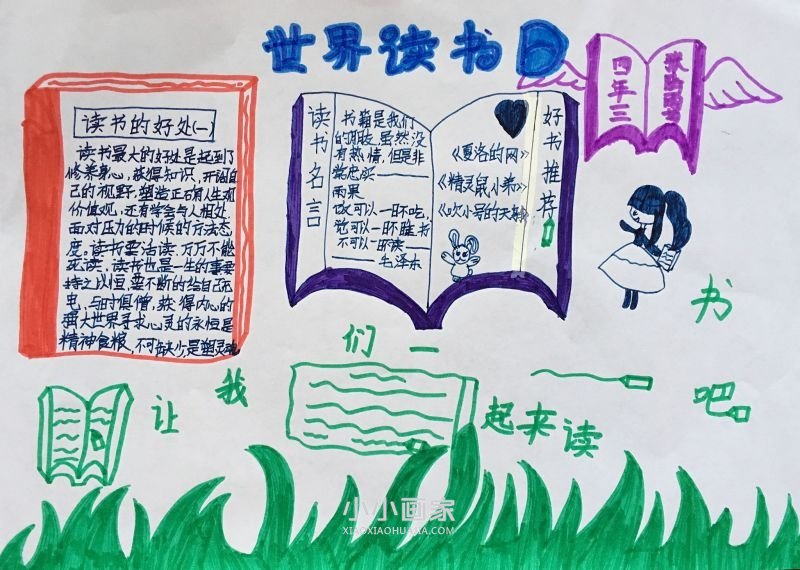 世界读书日
四年三
读书的好处(一)
读书最大的好处是起到了
修养身心,获得知识,开阔自
己的视野,塑造正确人生观
价值观,还有学会与人相处
面对压力的时候的方法态
度。读书要活读,万万不能
死读,读书也是一生的事要
持之以恒,要不断的给自己充
电,与时俱僧,获得内心的
强大世界寻求心灵的永恒是
精神食粮,不可缺少,是塑灵魂
读书名言
书籍是我们
的朋友,虽然没
有热情,但是非
常忠实——
雨果
饭可以一日不吃,
觉可以一日不睡,书
不可以一日不读——
——毛泽东
好书推荐
《夏洛的网》
《精灵鼠小弟》
《吹小号的天鹅》
让我们一起来读书吧
小小画家
XIAOXIAOHUAJIA.COM